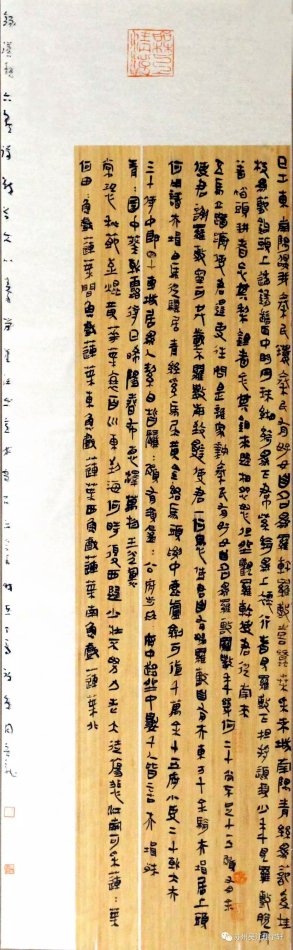 日出東南隅照我秦氏樓秦氏有好女自名爲羅敷羅敷喜蠶桑采桑城南隅青絲爲籠係桂
枝爲籠鉤頭上倭墮髻耳中明月珠緗綺爲下帬紫綺爲上襦行者見羅敷下擔捋髭須少年見羅敷脫帽
著帩頭耕者忘其犁鋤者忘其鋤來歸相怨怒但坐觀羅敷使君從南來
五馬立踟躕使君遣吏往問是誰家姝秦氏有好女自名爲羅敷羅敷年幾何二十尚不足十五頗有餘
使君謝羅敷寧可共載不羅敷前致辭使君一何愚使君自有婦羅敷自有夫東方千餘騎夫壻居上頭
何用識夫壻白馬從驪駒青絲繫馬尾黃金絡馬頭腰中鹿盧劍可值千萬餘十五府小吏二十朝大夫
三十侍中郎四十專城居爲人潔白皙鬑=頗有須盈=公府步冉=府中趨坐中數千人皆言夫壻殊
青=園中葵朝露待日晞陽春布德澤萬物生光輝
常恐秋節至焜黃華葉衰百川東到海何時復西歸少壯不努力老大徒傷悲江南可采蓮=葉
何田=魚戲蓮葉間魚戲蓮葉東魚戲蓮葉西魚戲蓮葉南魚戲蓮葉北
錄漢魏六朝詩